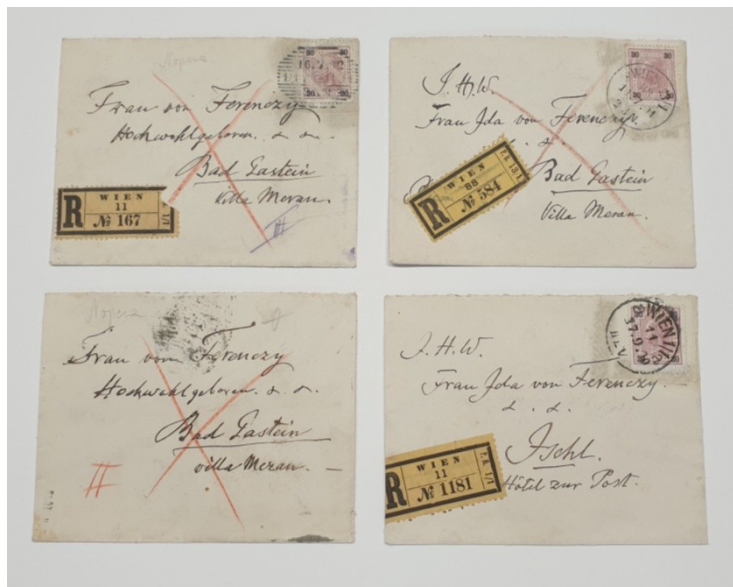 Лорепа
Frau von Ferenczy
Hochwohlgeboren. d. d.
Bad Gastein
Villa Meran.
R
WIEN
11
№ 167
1/1
30 30
30 30
16.7
I. H. W.
Frau Ida von Ferenczy
d. d.
Bad Gastein
Villa Meran.
R
WIEN
88
№ 584
30 30
WIEN
Frau von Ferenczy
Hochwohlgeboren. d. d.
Bad Gastein
villa Meran. —
I. H. W.
Frau Ida von Ferenczy.
d. d.
Ischl.
Hôtel zur Post.
R
WIEN
11
№ 1181
1/1
WIEN
11